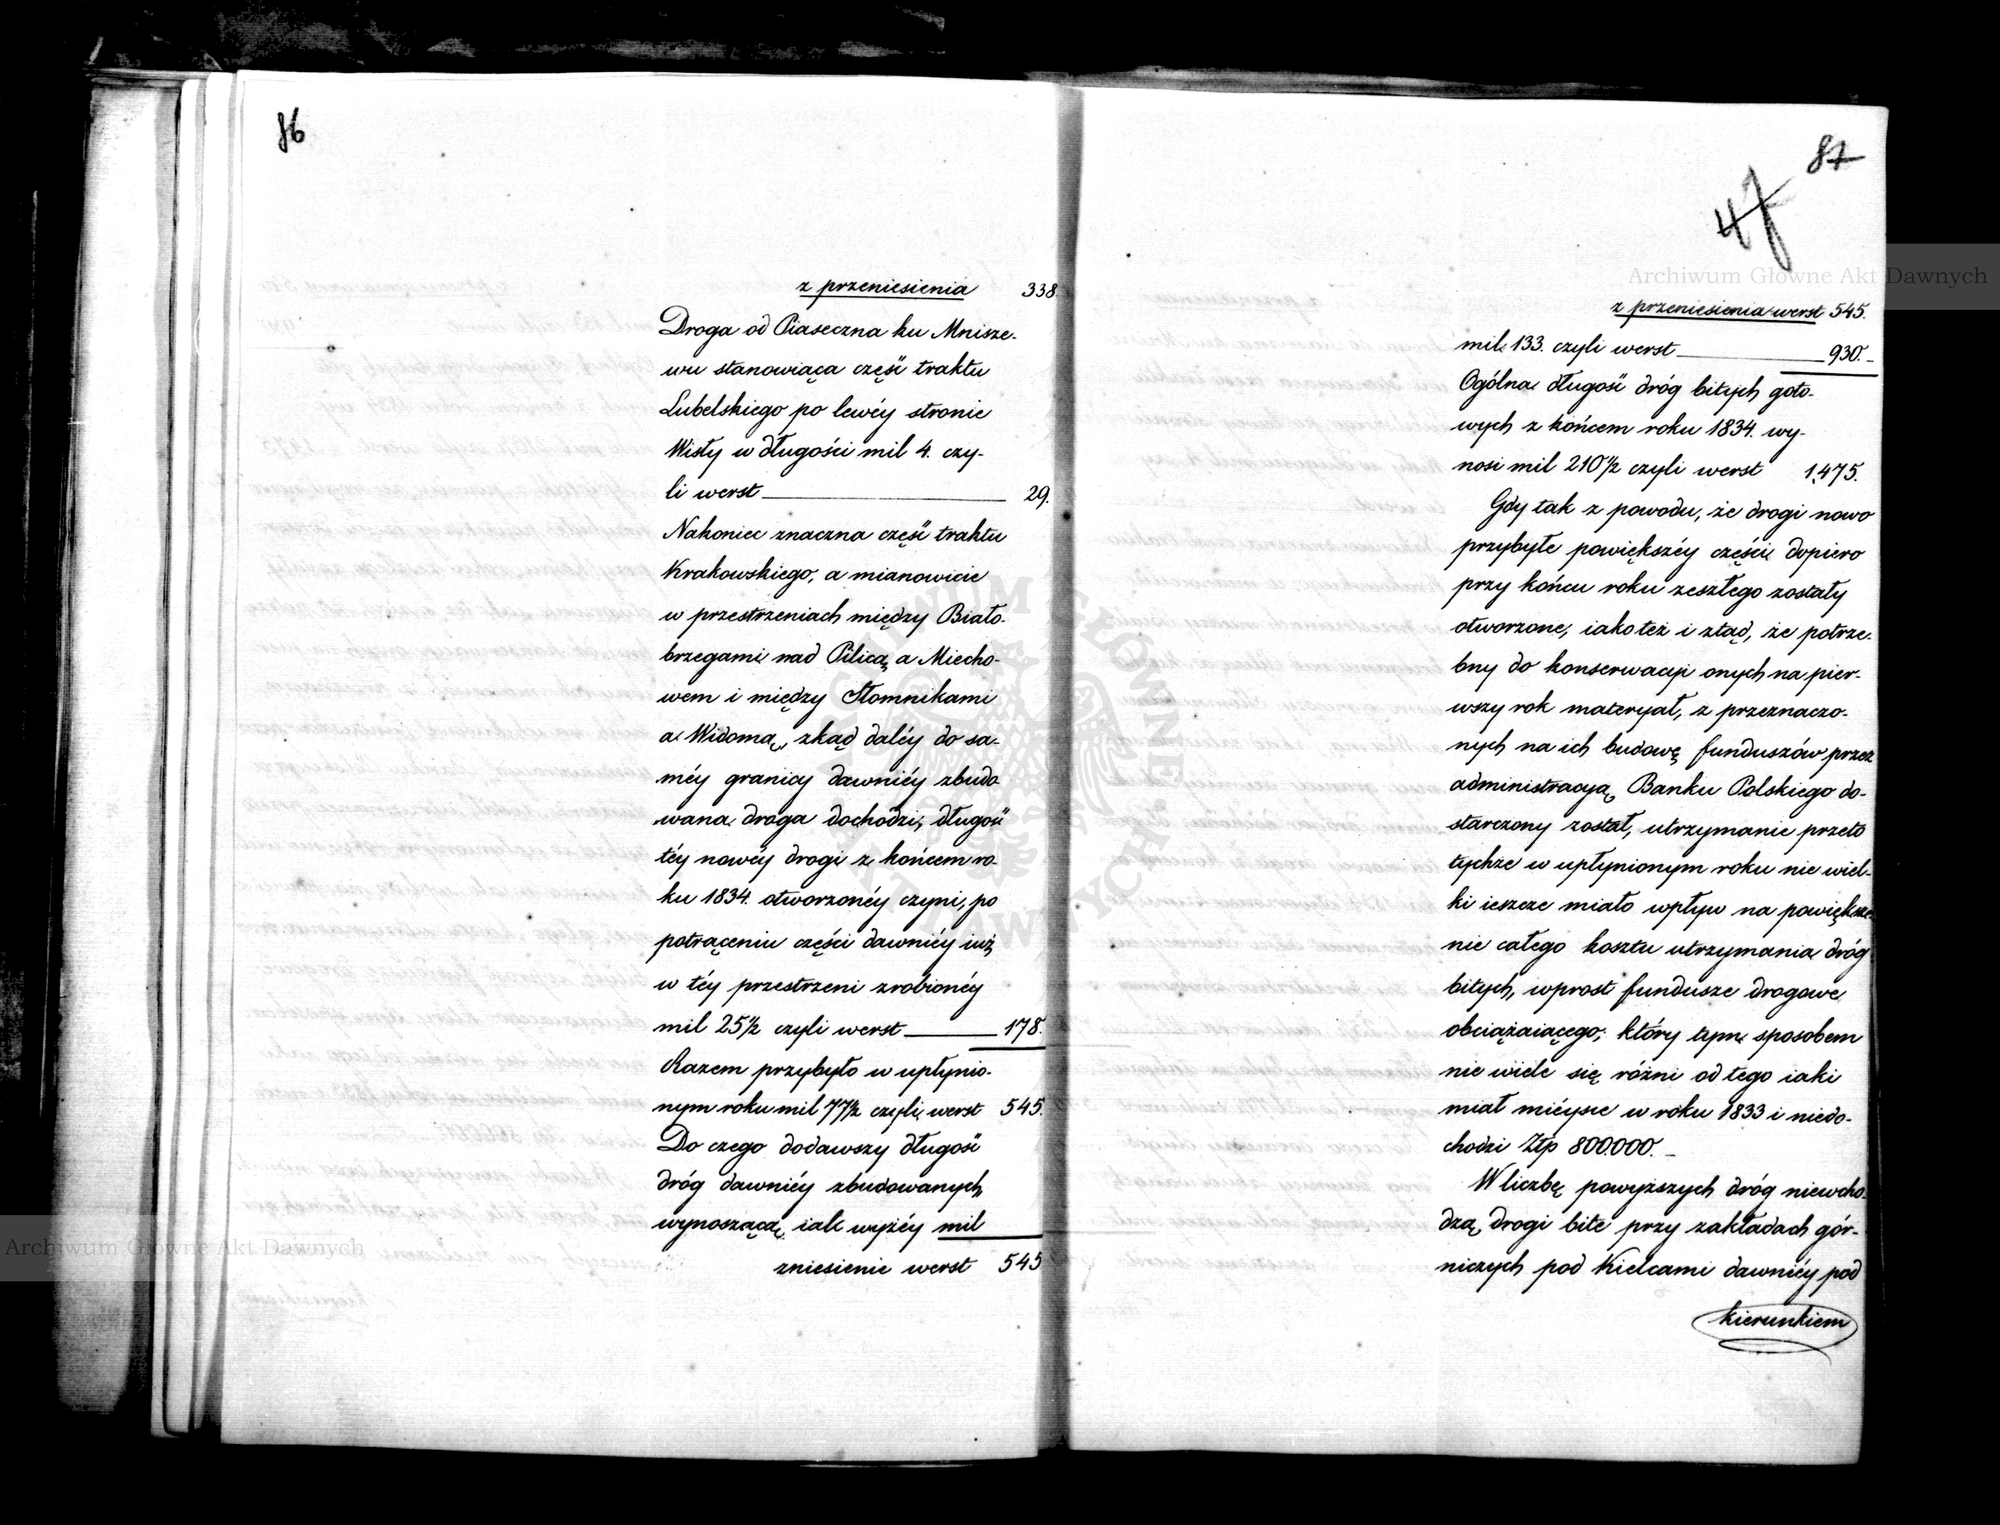 86
z przeniesienia 338
Droga od Piaseczna ku Mnisze-
wu stanowiąca część traktu
Lubelskiego po lewéy stronie
Wisły w długości mil 4. czy-
li werst 29.
Nakoniec znaczna część traktu
Krakowskiego, a mianowicie
w przestrzeniach między Biało-
brzegami nad Pilicą a Miecho-
wem i między Słomnikami
a Widomą, zkąd daléy do sa-
méy granicy dawniéy zbudo
wana droga dochodzi, długość
téy nowéy drogi z końcem ro-
ku 1834. otworzonéy czyni, po
potrąceniu części dawniéy iuż
w téy przestrzeni zrobionéy
mil 25 1/2 czyli werst 178.
Razem przybyło w upłynio-
nym roku mil 77 1/2 czyli werst 545.
Do czego dodawszy długość
dróg dawniéy zbudowanych,
wynoszącą, iak wyżéy mil
zniesienie werst 545
87
47
z przeniesienia werst 545.
mil 133. czyli werst 930.
Ogólna długość dróg bitych goto-
wych z końcem roku 1834. wy-
nosi mil 210 1/2 czyli werst 1,475.
Gdy tak z powodu, że drogi nowo
przybyłe powiększéy części dopiero
przy końcu roku zeszłego zostały
otworzone, iakoteż i ztąd, że potrze-
bny do konserwacyi onych na pier-
wszy rok materyał, z przeznaczo-
nych na ich budowę funduszów przez
administracyą Banku Polskiego do-
starczony został, utrzymanie przeto
tychże w upłynionym roku nie wiel-
ki ieszcze miało wpływ na powiększe-
nie całego kosztu utrzymania dróg
bitych, wprost fundusze drogowe
obciążaiącego, który tym sposobem
nie wiele się różni od tego iaki
miał mieysce w roku 1833 i niedo-
chodzi Złp 800.000.
W liczbę powyższych dróg niewcho-
dzą, drogi bite przy zakładach gór-
niczych pod Kielcami dawniéy pod
kierunkiem
Archiwum Główne Akt Dawnych
Archiwum Główne Akt Dawnych
ARCHIWUM GŁÓWNE AKT DAWNYCH